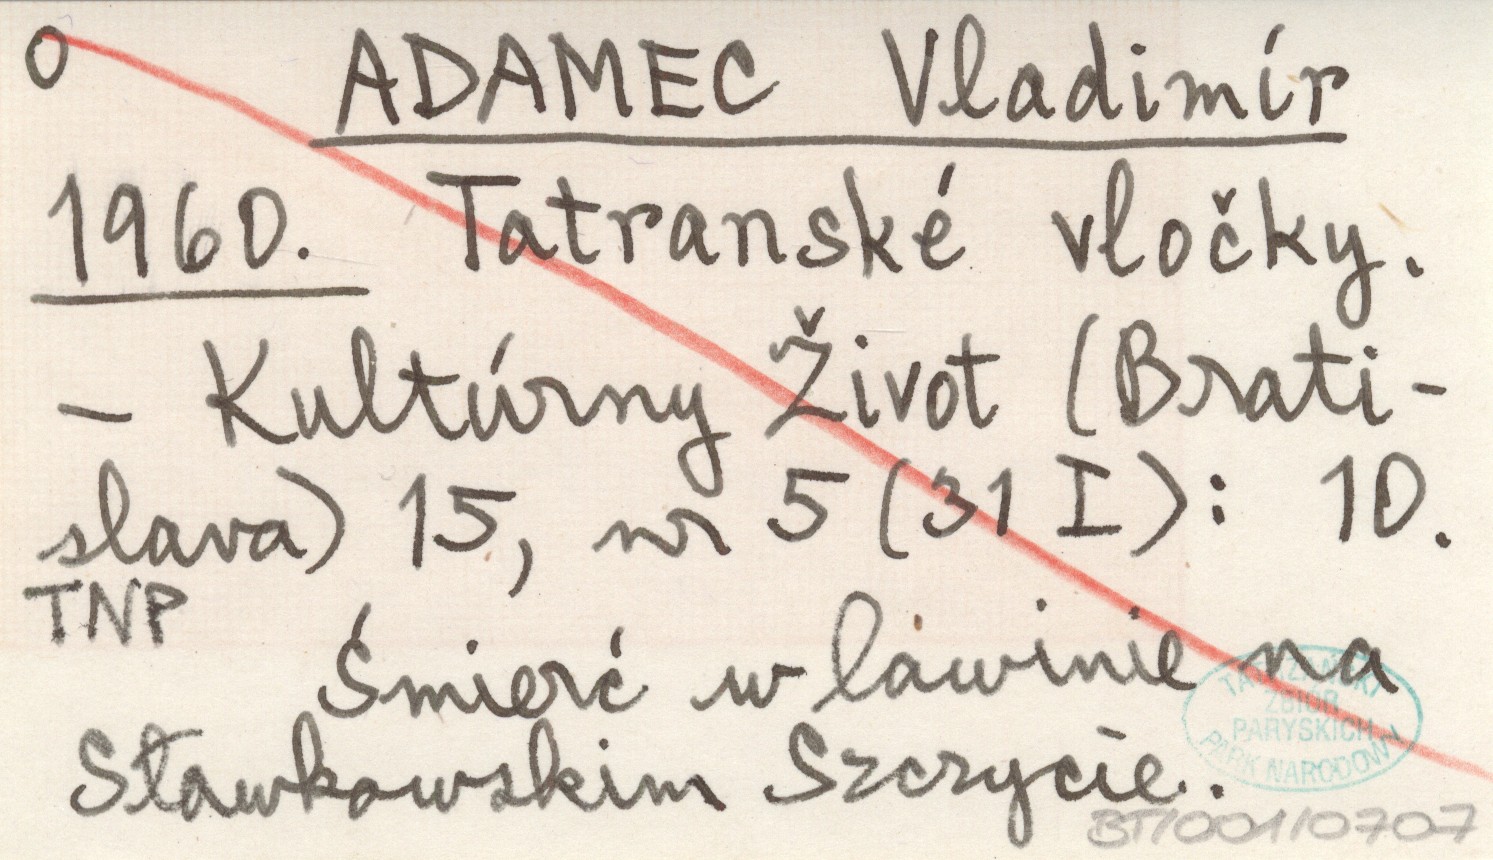 O ADAMEC Vladimír
1960. Tatranské vločky.
– Kultúrny Život (Brati-
slava) 15, nr 5 (31 I): 10.
TNP
Śmierć w lawinie na
Sławkowskim Szczycie.
TATRZAŃSKI
ZBIÓR
PARYSKICH
PARK NARODOWY
BT/001/0707